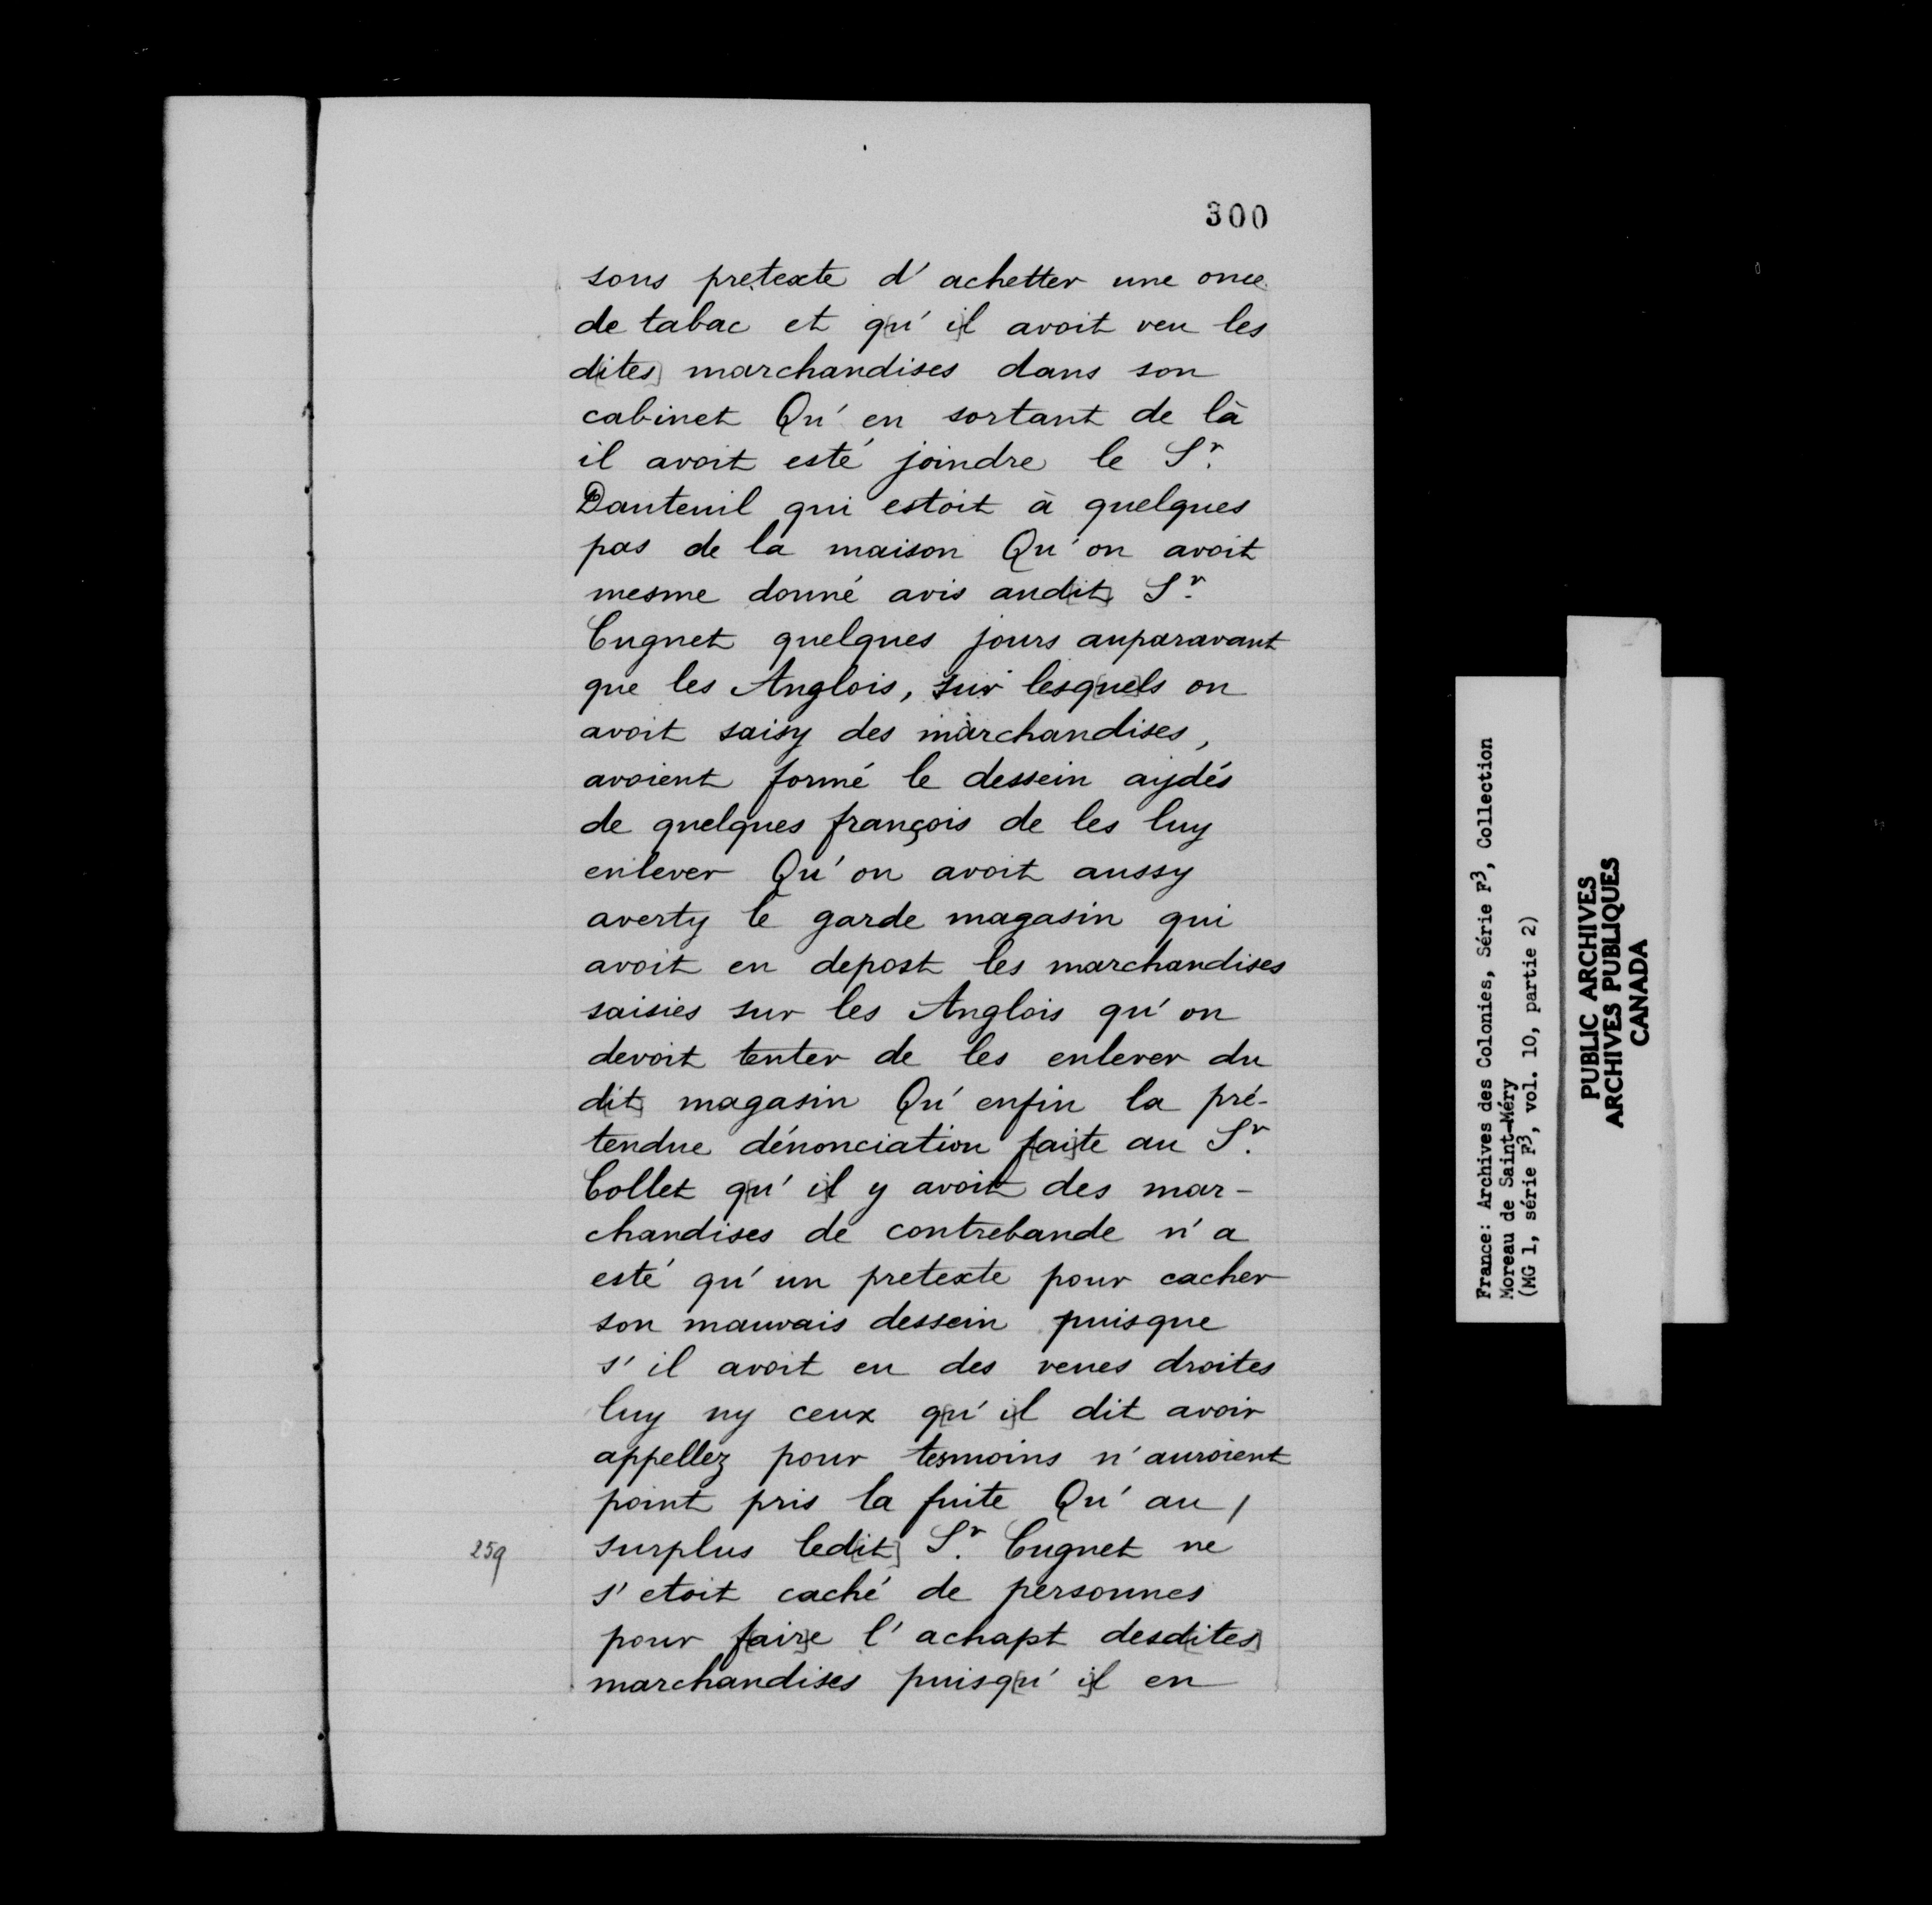 300
sous pretexte d'achetter une once
de tabac et q[u'i]l avoit veu les
d[ites] marchandises dans son
cabinet Qu'en sortant de là
il avoit esté joindre le Sr.
Dauteuil qui estoit à quelques
pas de la maison Qu'on avoit
mesme donné avis aud[it] Sr.
Cugnet quelques jours auparavant
que les Anglois, sur lesq[ue]ls on
avoit saisy des marchandises,
avoient formé le dessein aydés
de quelques françois de les luy
enlever Qu'on avoit aussy
averty le garde magasin qui
avoit en depost les marchandises
saisies sur les Anglois qu'on
devoit tenter de les enlever du
d[it] magasin Qu'enfin la pré-
tendue dénonciation f[ai]te au Sr.
Collet q[u'i]l y avoit des mar-
chandises de contrebande n'a
esté qu'un pretexte pour cacher
son mauvais dessein puisque
s'il avoit eu des veues droites
luy ny ceux q[u'i]l dit avoir
appellez pour tesmoins n'auroient
point pris la fuite Qu'au /
259 surplus led[it] Sr. Cugnet ne
s'etoit caché de personnes
pour f[air]e l'achapt desd[ites]
marchandises puisq[u'i]l en
France: Archives des Colonies, Série F3, Collection
Moreau de Saint-Méry
(MG 1, série F3, vol. 10, partie 2)
PUBLIC ARCHIVES
ARCHIVES PUBLIQUES
CANADA